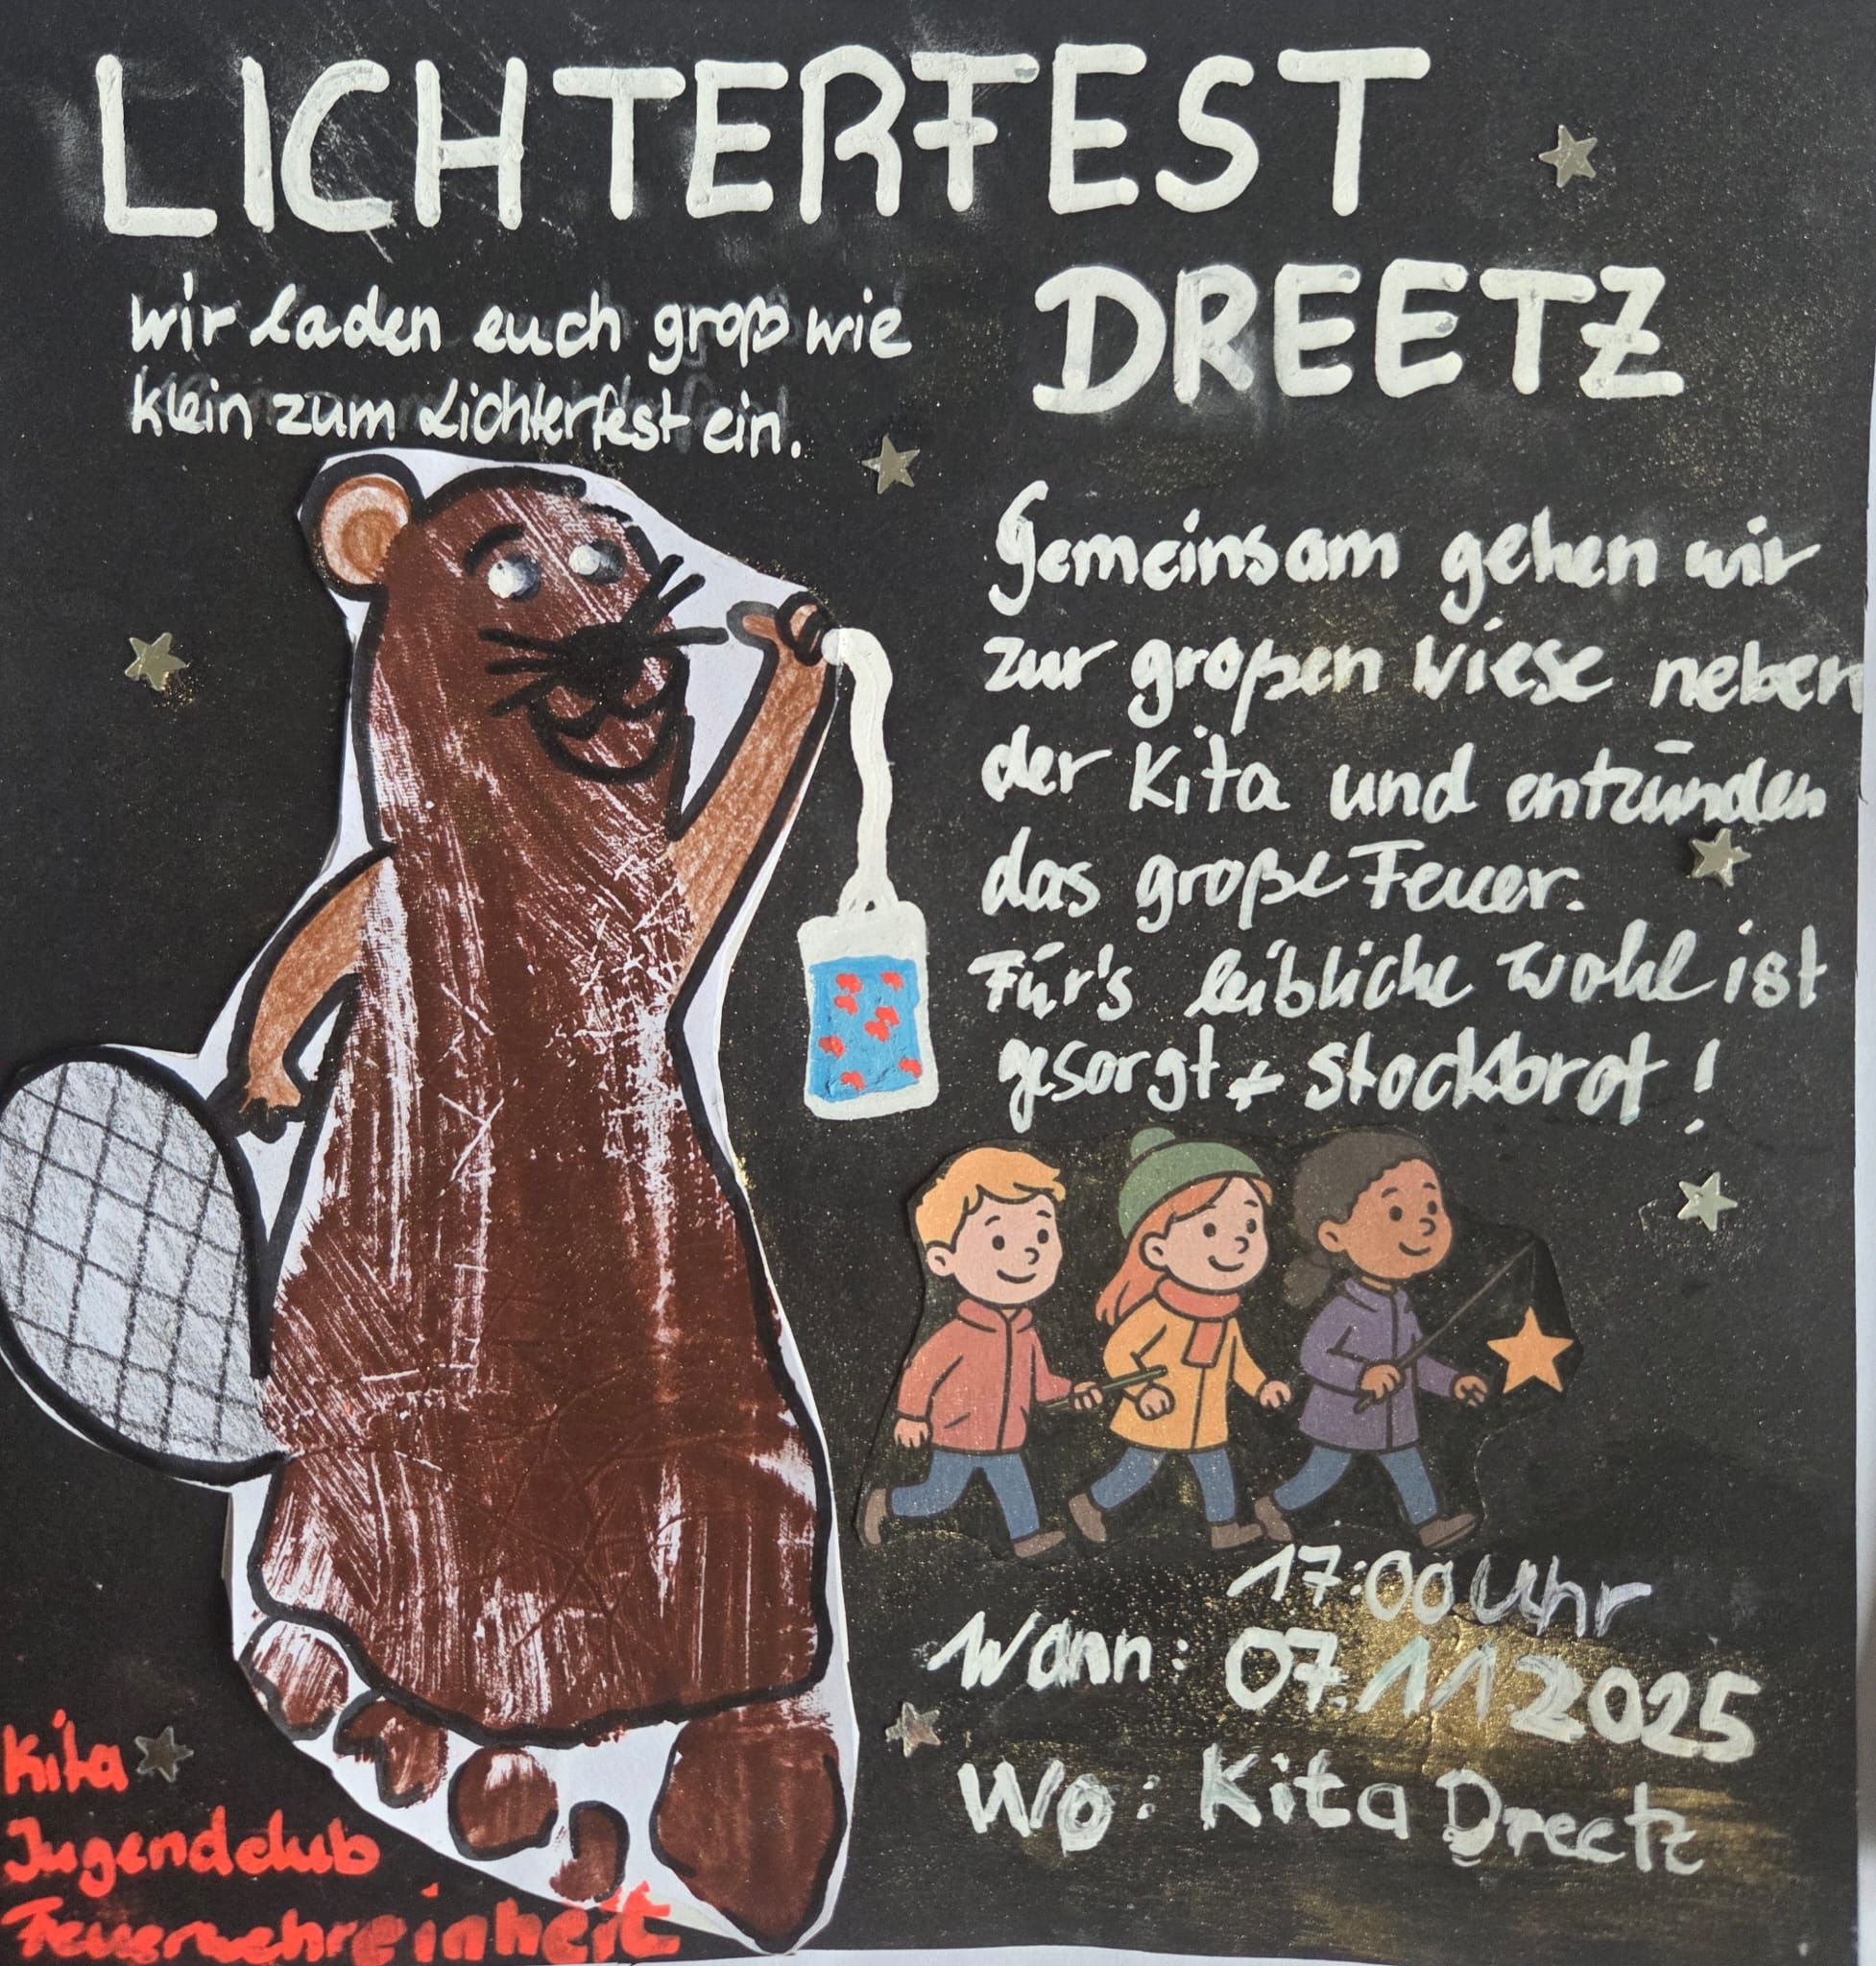 LICHTERFEST
DREETZ
Wir laden euch groß wie
klein zum Lichterfest ein.
Gemeinsam gehen wir
zur großen Wiese neben
der Kita und entzünden
das große Feuer.
Für's leibliche Wohl ist
gesorgt + Stockbrot!
17:00 Uhr
Wann: 07.11.2025
Wo: Kita Dreetz
Kita
Jugendclub
Feuerwehreinheit